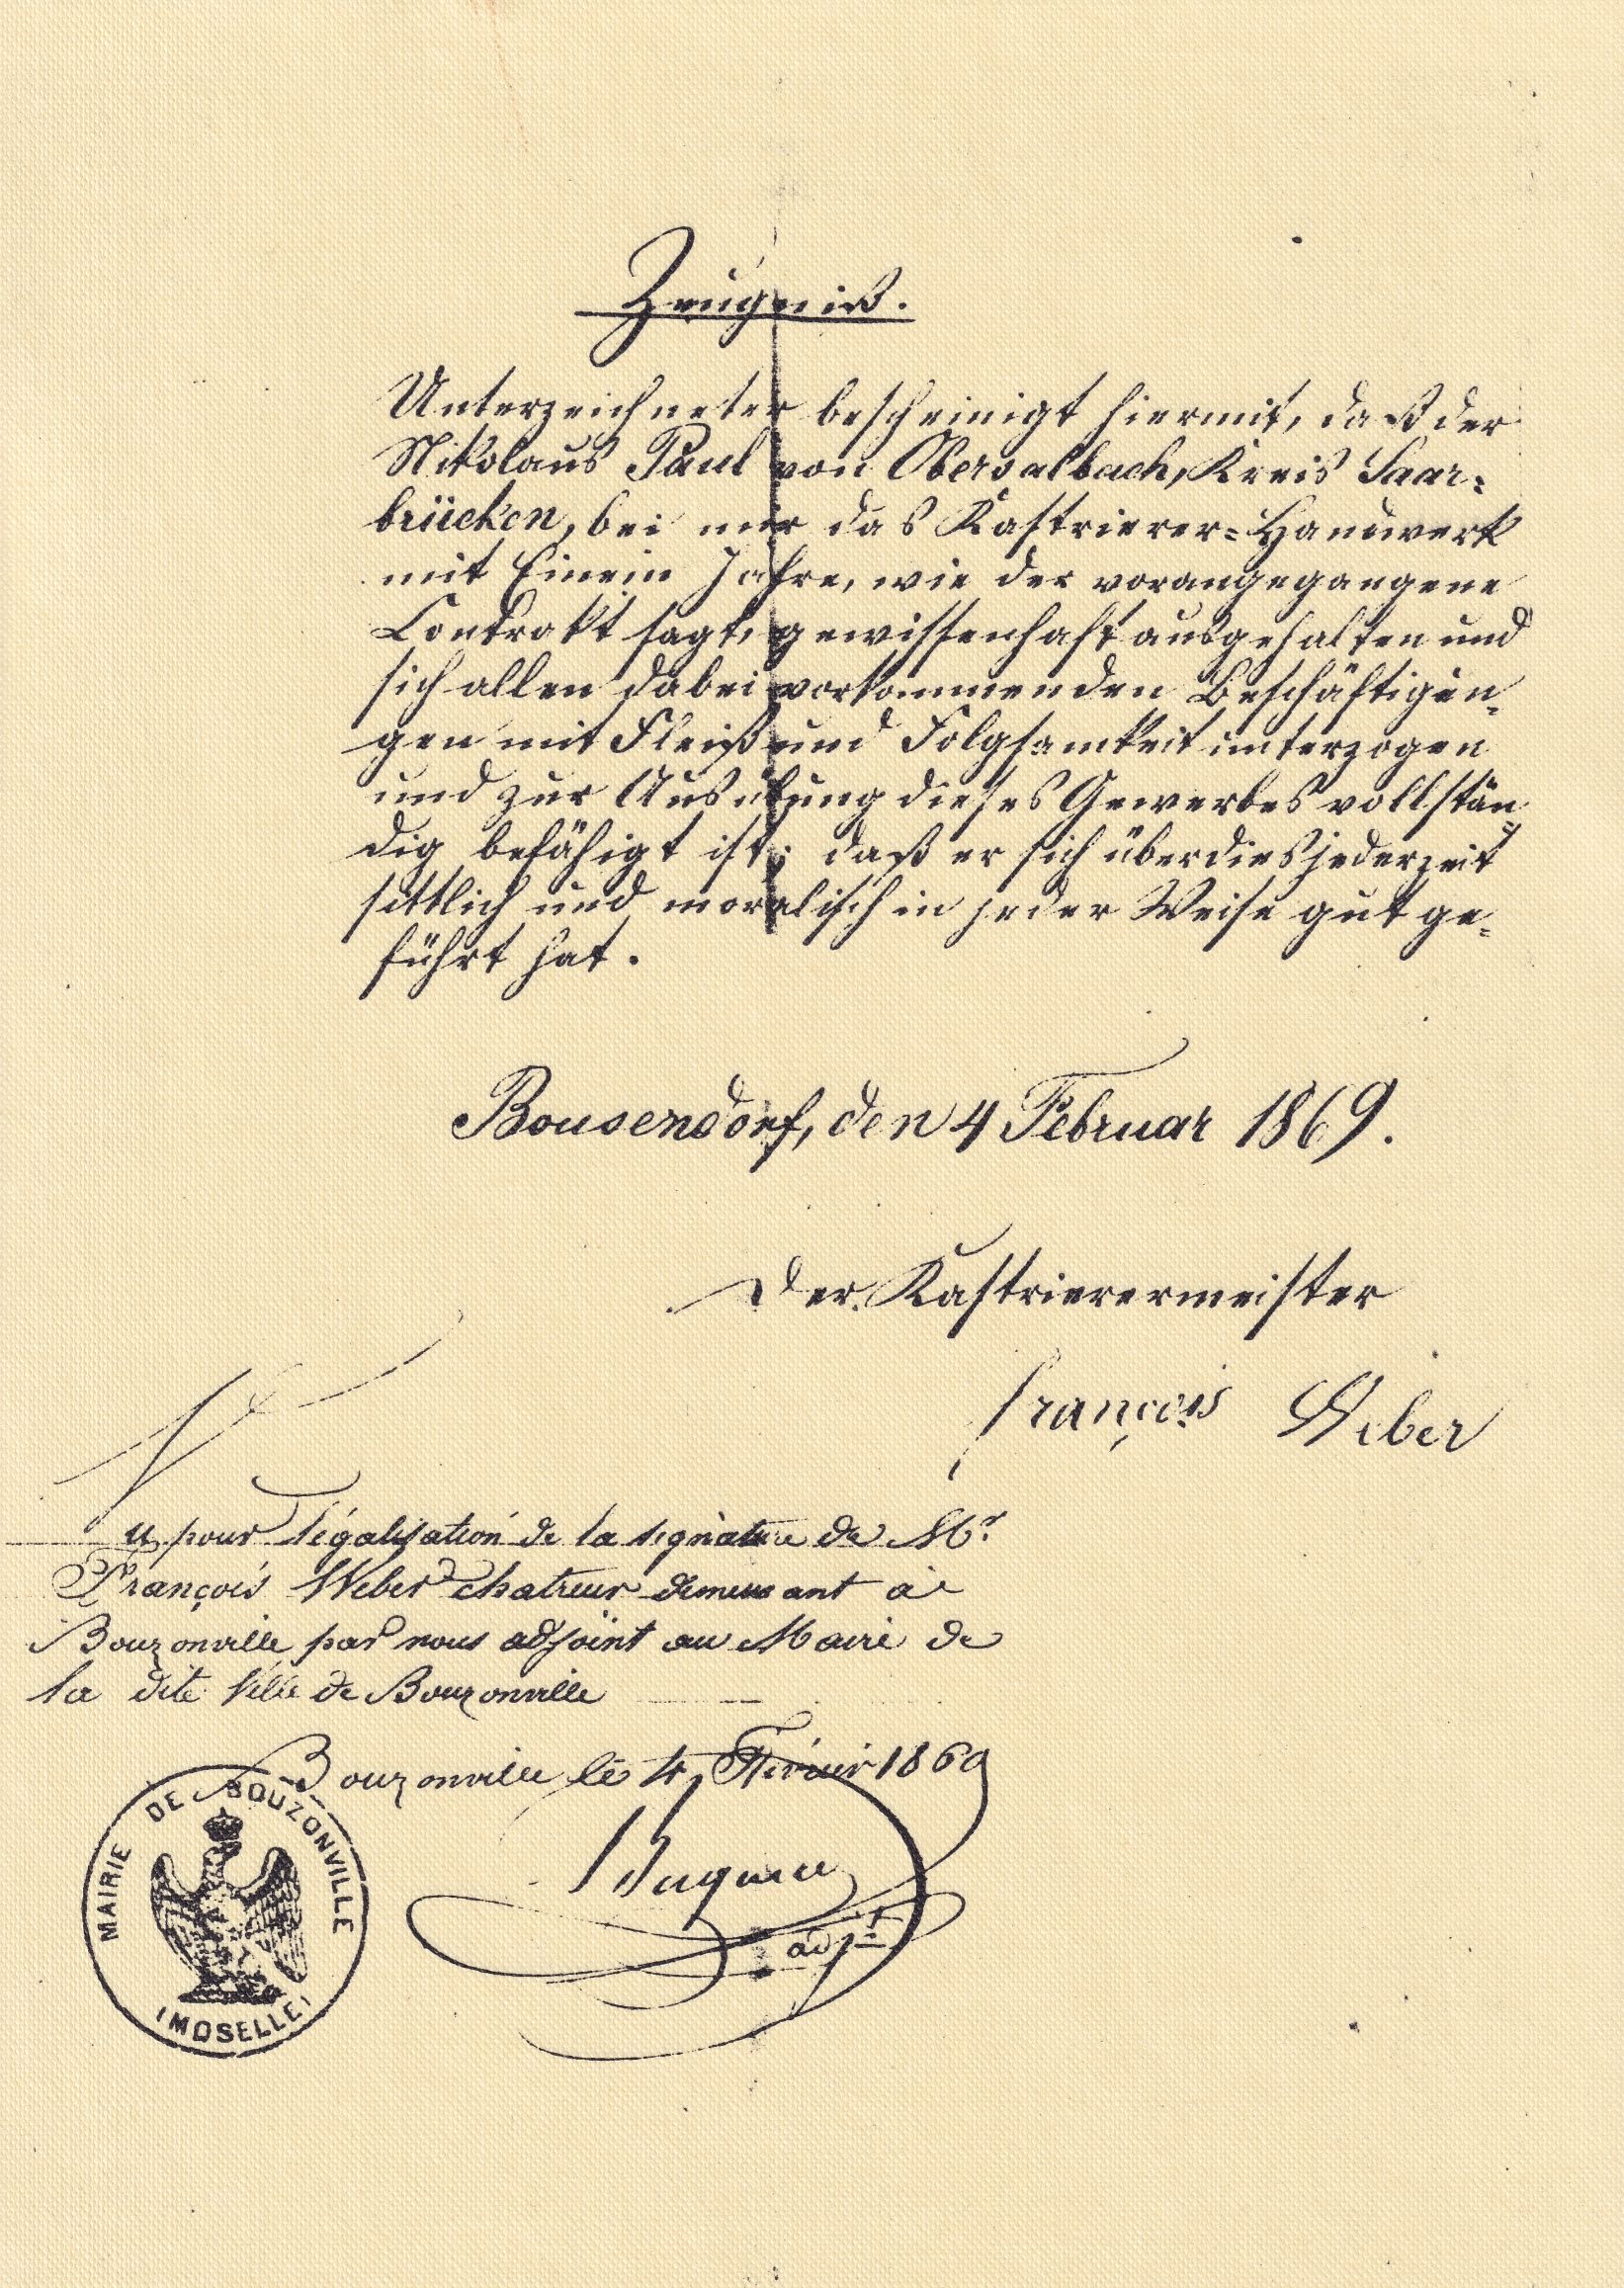 Zeugniß.
Unterzeichneter bescheinigt hiermit, daß der
Nikolaus Paul von Obersalbach, Kreis Saar=
brücken, bei mir das Kastrierer=Handwerk
mit Einem Jahre, wie der vorangegangene
Contrakt sagt, gewissenhaft ausgehalten und
sich allen dabei vorkommenden Beschäftigun=
gen mit Fleiß und Folgsamkeit unterzogen
und zur Ausübung dieses Gewerbes vollstän=
dig befähigt ist; daß er sich überdies jederzeit
sittlich und moralisch in jeder Weise gut ge=
führt hat.
Bousendorf, den 4 Februar 1869.
Der Kastrierermeister
François Weber
Vu pour légalisation de la signature de Mr
François Weber chatreur demeurant à
Bouzonville par nous adjoint au Maire de
la dite Ville de Bouzonville
Bouzonville le 4 Février 1869
adjt
MAIRIE DE BOUZONVILLE
(MOSELLE)